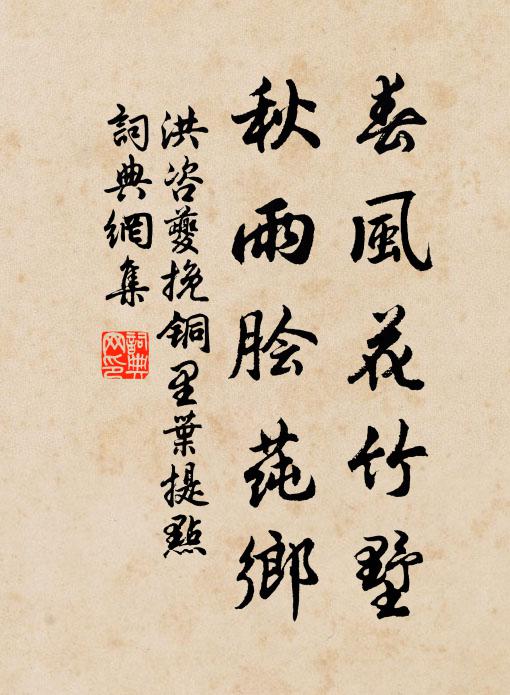 春風花竹墅
秋雨脍莼鄉
洪咨夔挽铜里葉提點
詞典網集
詞典網印